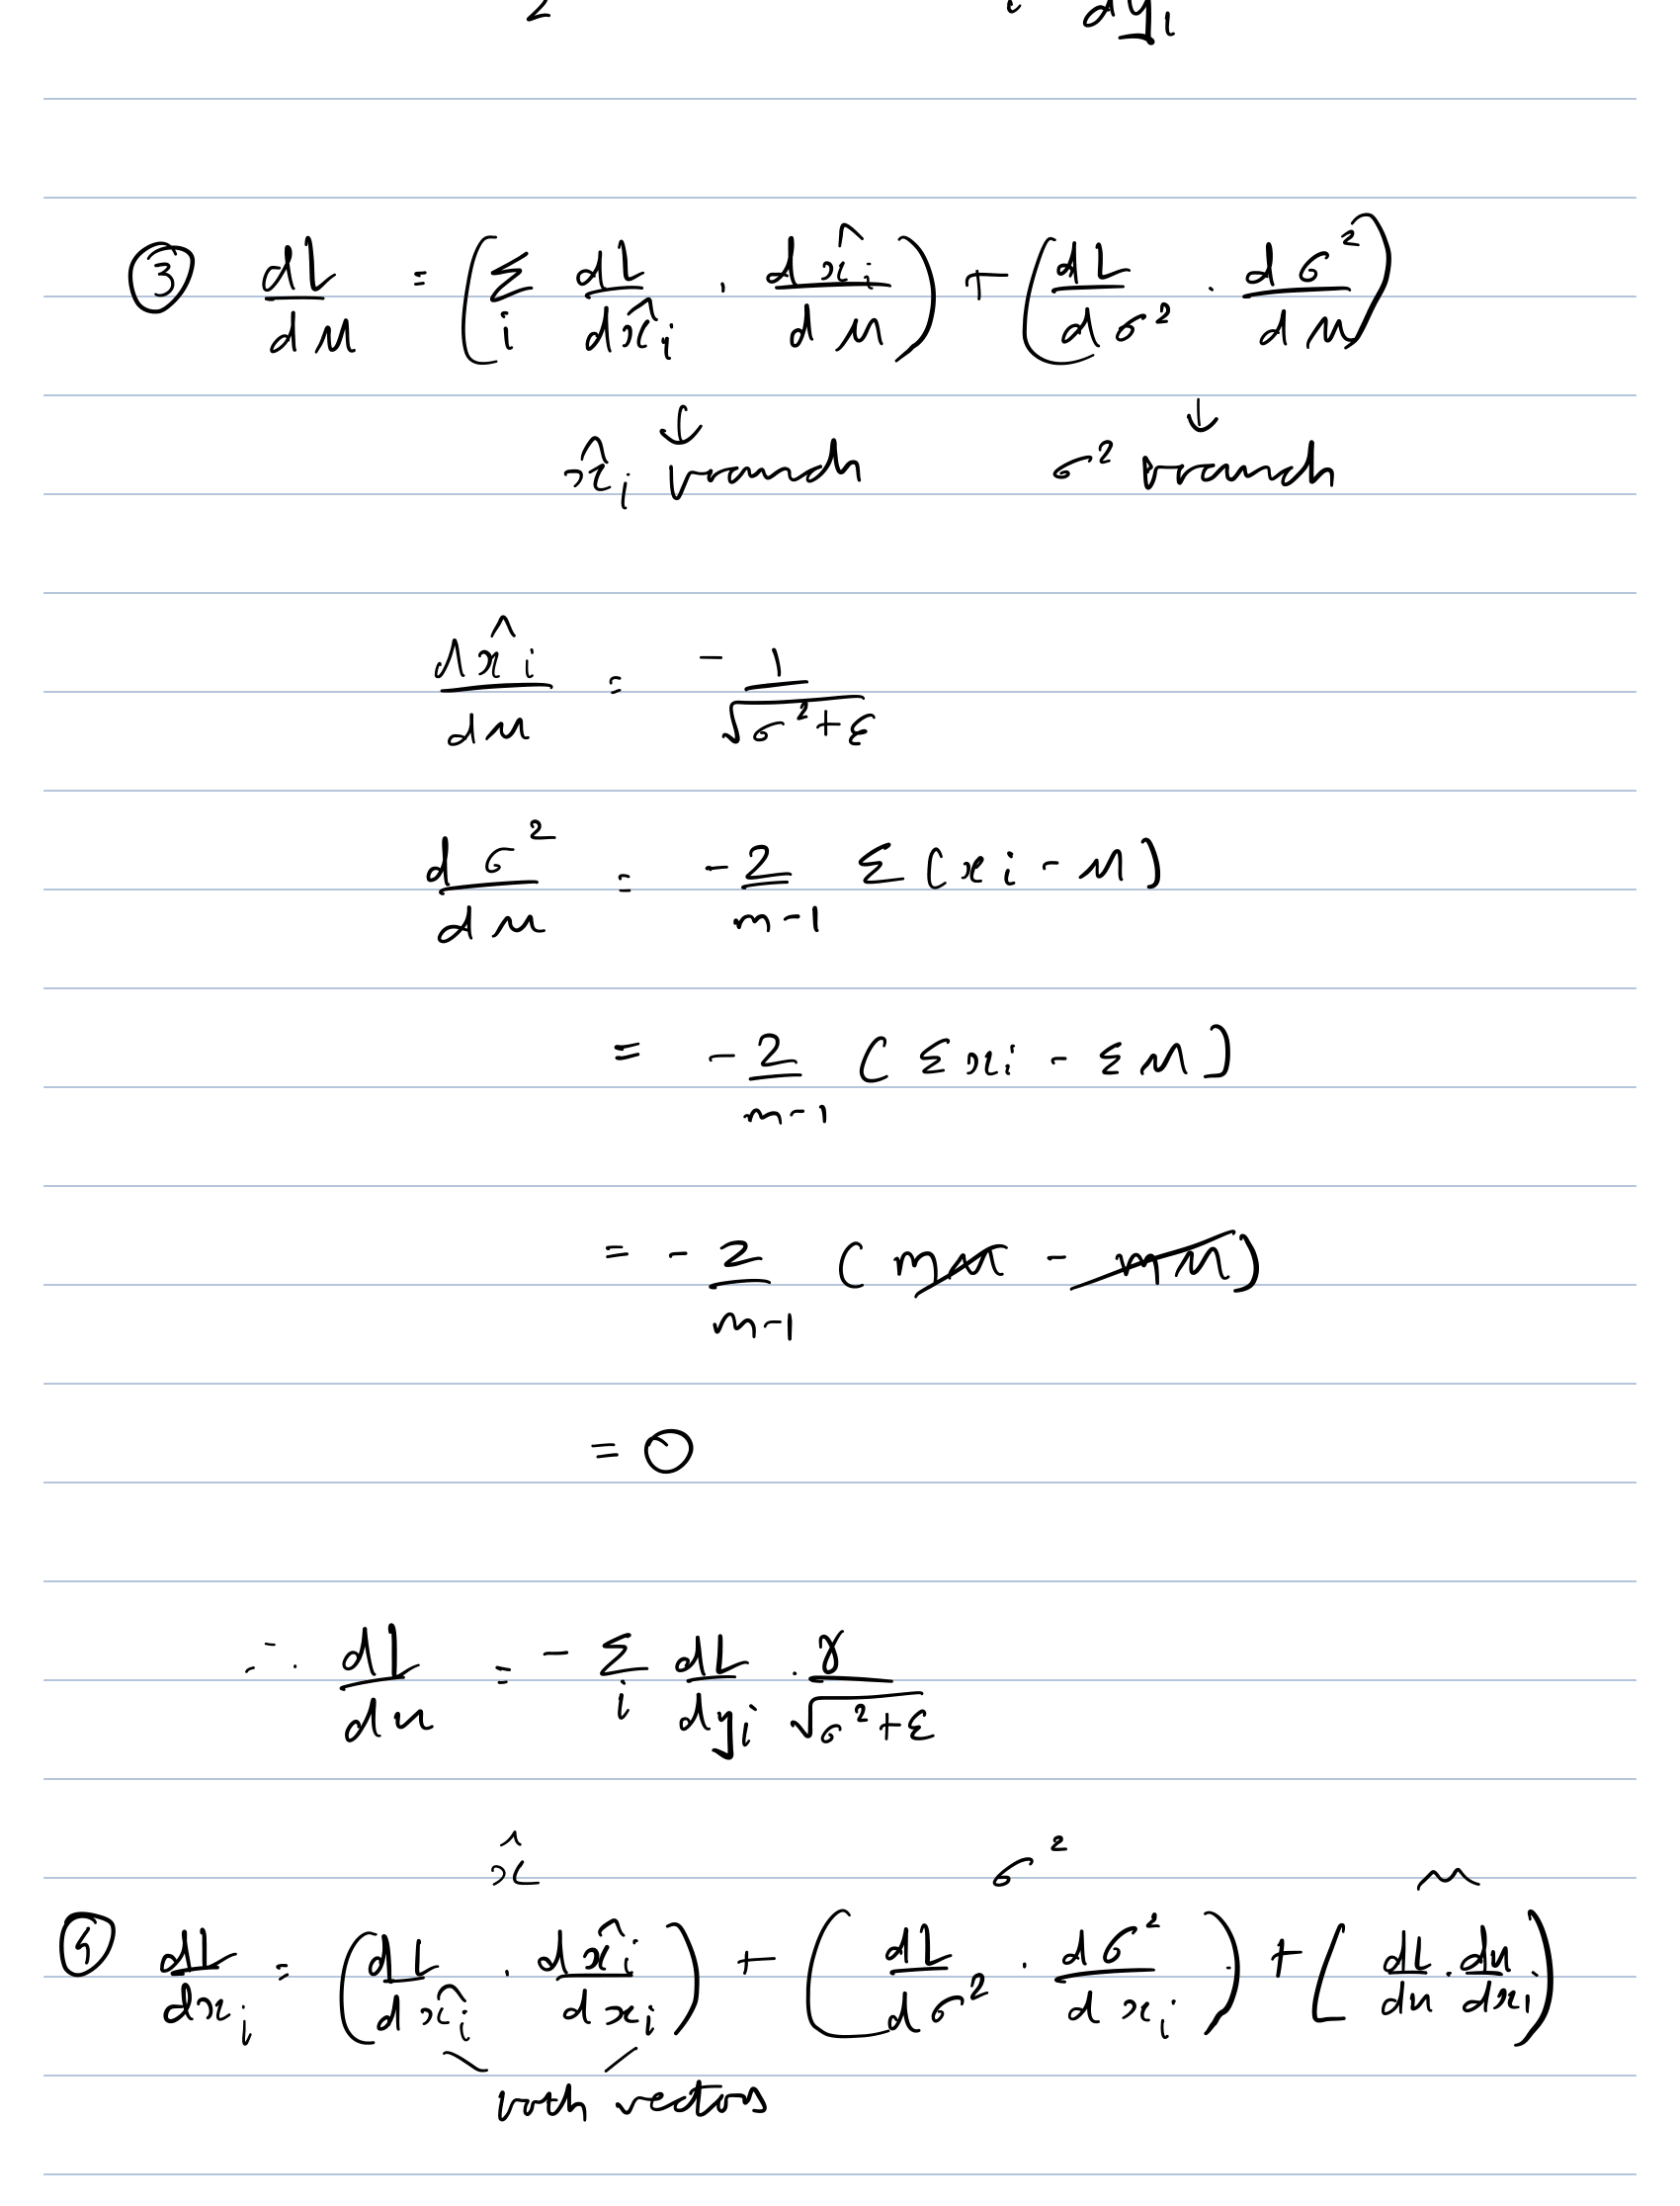 2 i dy_i
③ dL/dμ = (Σ_i dL/dx̂_i · dx̂_i/dμ) + (dL/dσ² · dσ²/dμ)
↓ ↓
x̂_i branch σ² branch
dx̂_i/dμ = -1/√(σ²+ε)
dσ²/dμ = -2/(m-1) Σ(x_i - μ)
= -2/(m-1) (Σx_i - Σμ)
= -2/(m-1) (mμ - mμ)
= 0
∴ dL/dμ = - Σ_i dL/dy_i · γ/√(σ²+ε)
x̂ σ² μ
④ dL/dx_i = (dL/dx̂_i · dx̂_i/dx_i) + (dL/dσ² · dσ²/dx_i) + (dL/dμ · dμ/dx_i)
both vectors